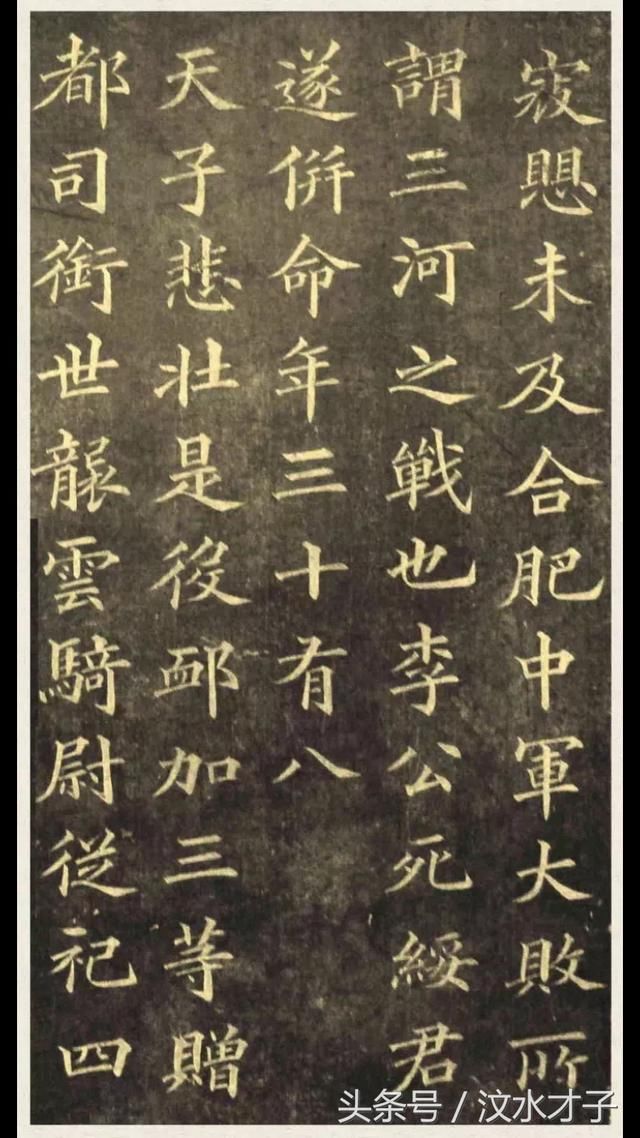 寇愳未及合肥中軍大敗所
謂三河之戰也李公死綏君
遂併命年三十有八
天子悲壯是役卹加三等贈
都司銜世襲雲騎尉從祀四
头条号 / 汶水才子